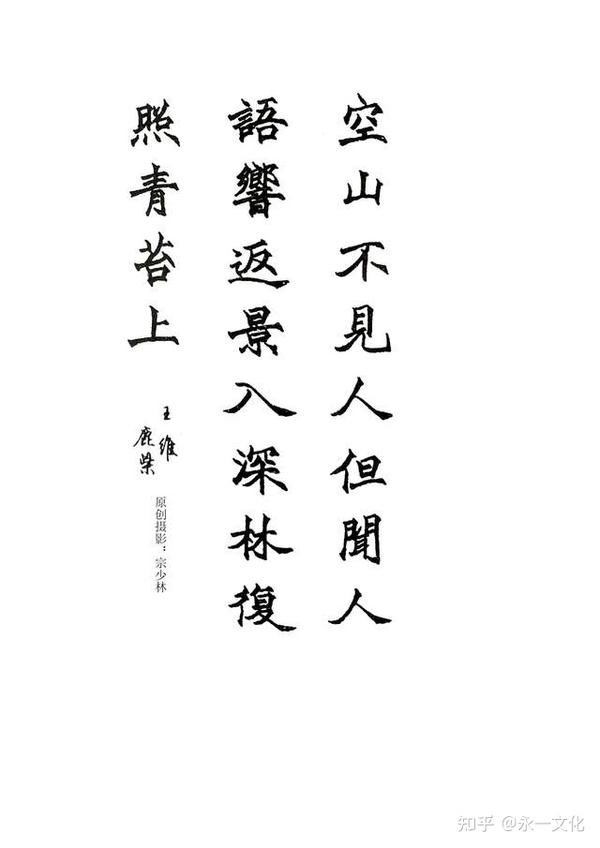 空山不見人但聞人
語響返景入深林復
照青苔上
王維
鹿柴
原创摄影：宗少林
知乎 @永一文化